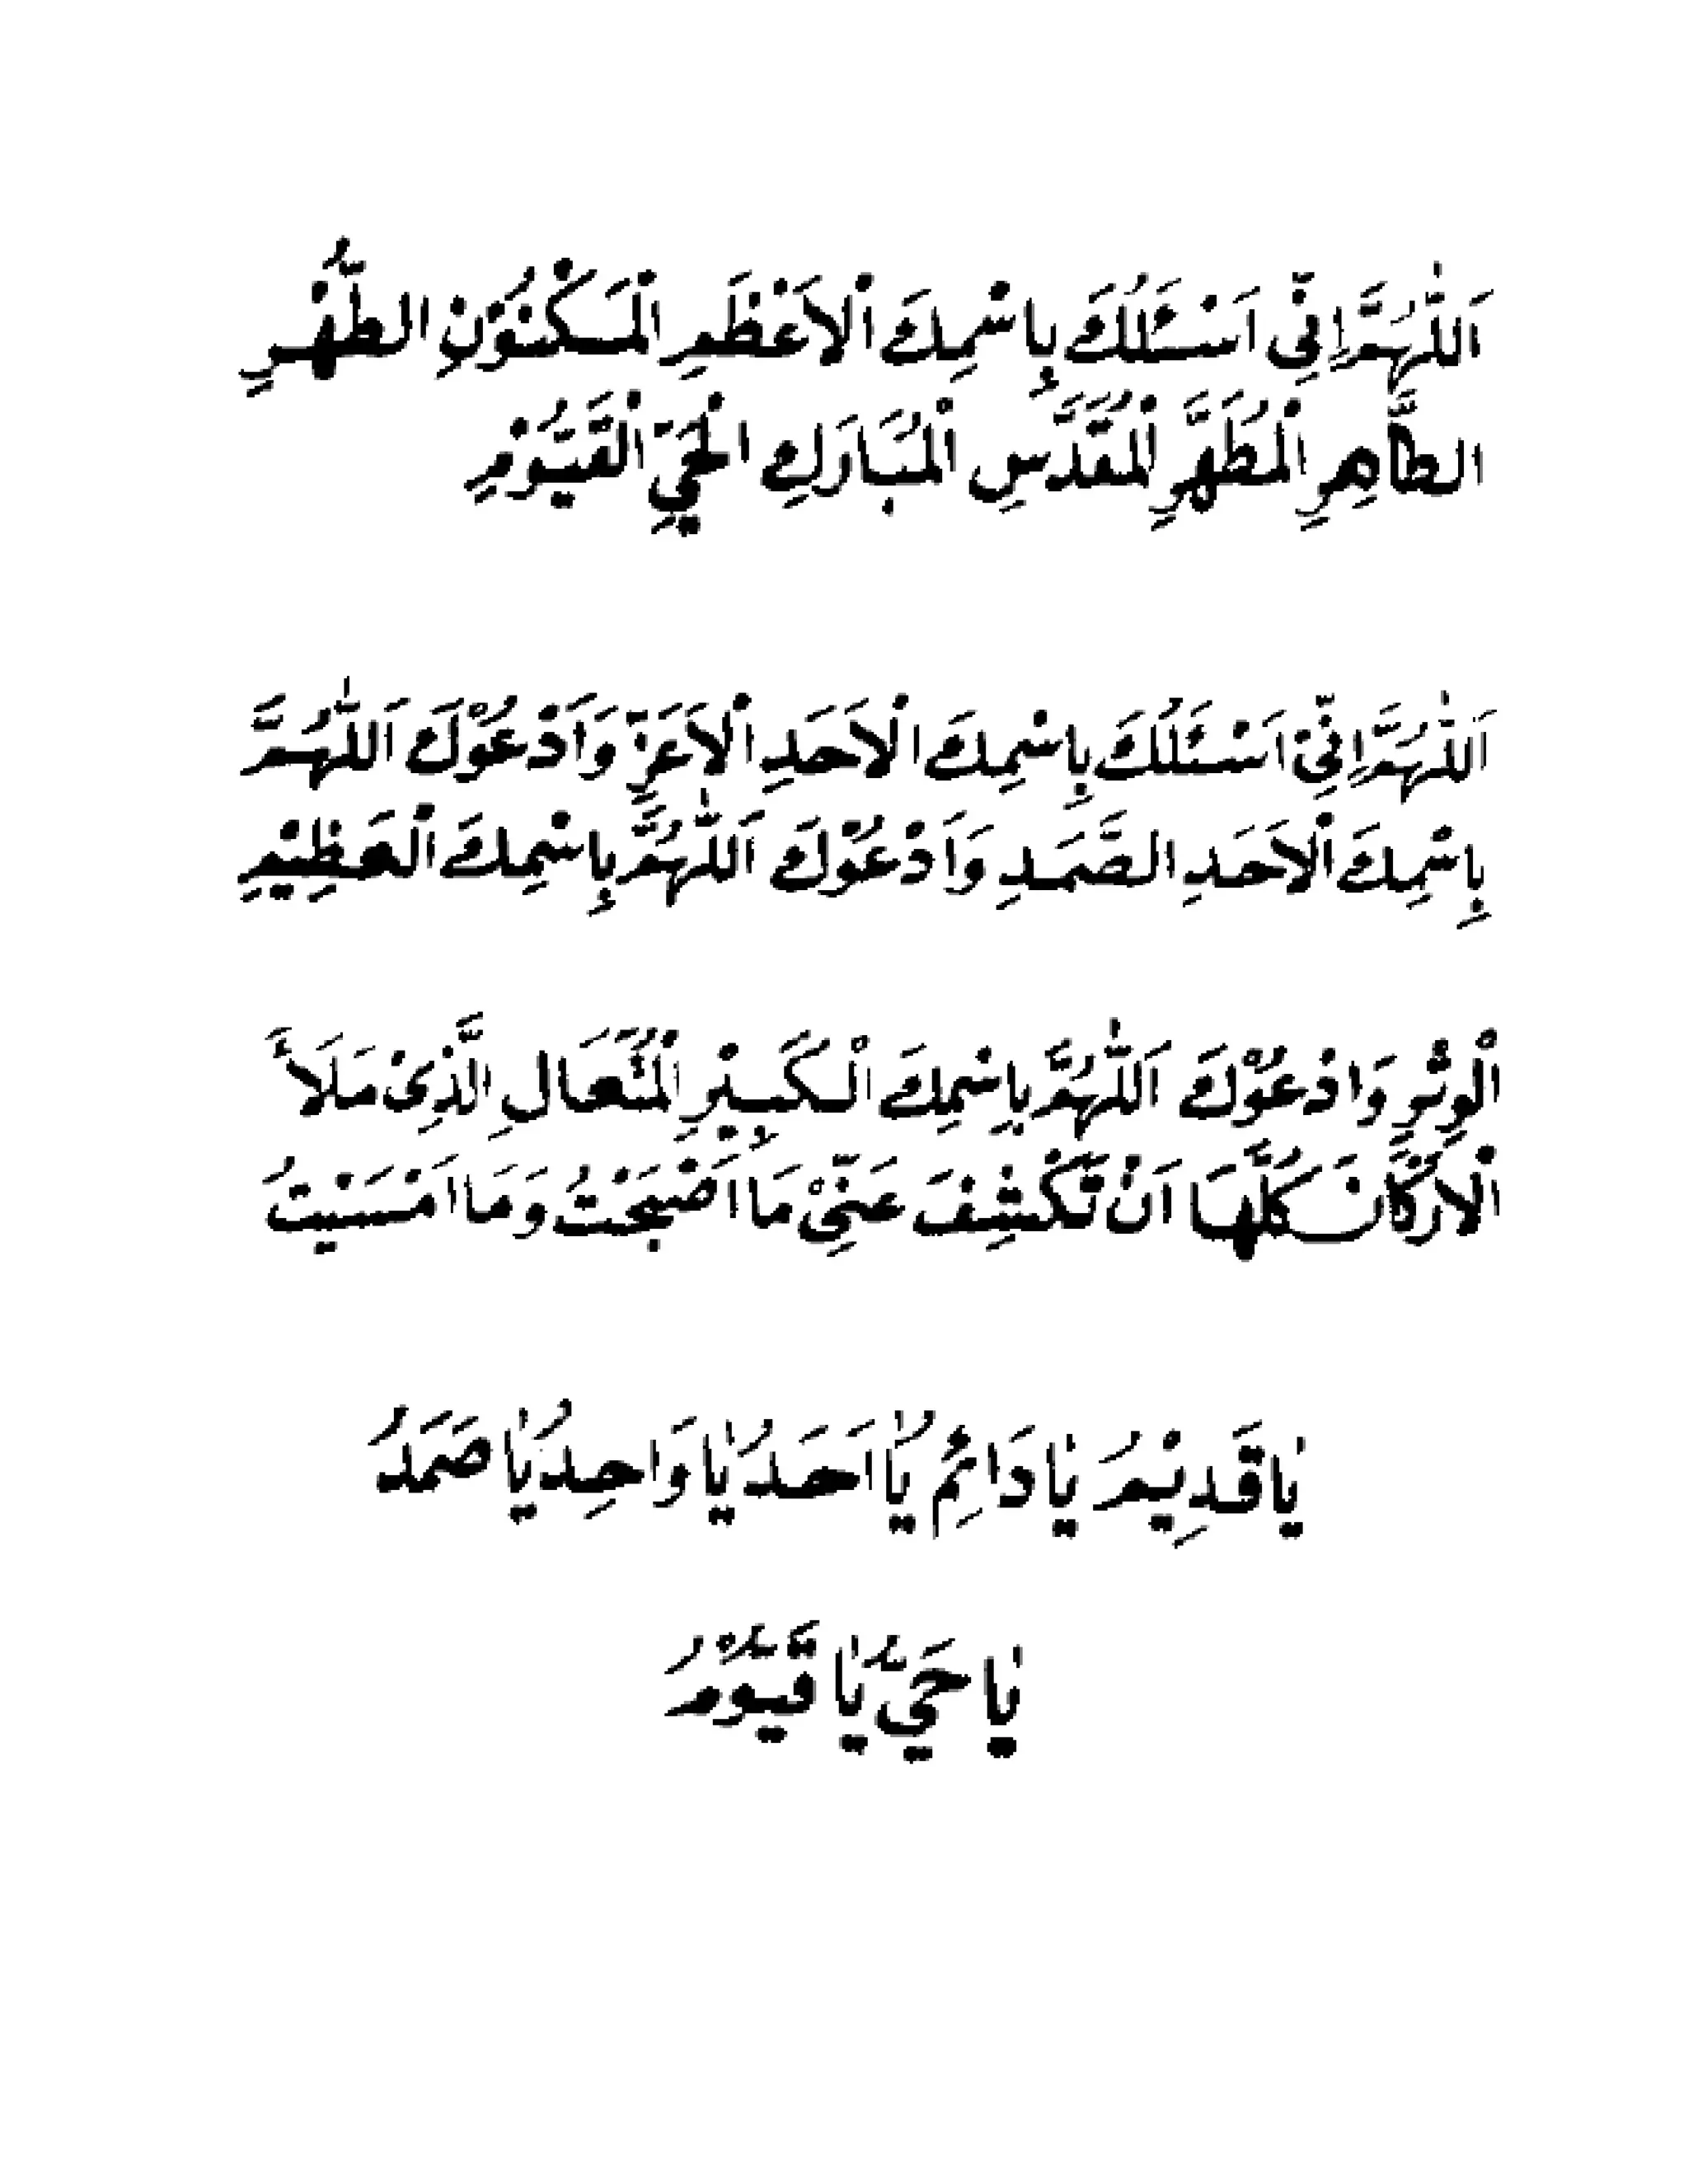 اَللّٰهُمَّ اِنِّى اَسْئَلُكَ بِاسْمِكَ الْاَعْظَمِ الْمَكْنُوْنِ الطُّهْرِ
الطَّاهِرِ الْمُطَهَّرِ الْمُقَدَّسِ الْمُبَارَكِ الْحَيِّ الْقَيُّوْمِ
اَللّٰهُمَّ اِنِّىْ اَسْئَلُكَ بِاسْمِكَ الْاَحَدِ الْاَعَزِّ وَاَدْعُوْكَ اَللّٰهُمَّ
بِاسْمِكَ الْاَحَدِ الصَّمَدِ وَاَدْعُوْكَ اَللّٰهُمَّ بِاسْمِكَ الْعَظِيْمِ
الْوِتْرِ وَادْعُوْكَ اَللّٰهُمَّ بِاسْمِكَ الْكَبِيْرِ الْمُتَعَالِ الَّذِىْ مَلَاَ
الْاَرْكَانَ كُلَّهَا اَنْ تَكْشِفَ عَنِّىْ مَا اَصْبَحْتُ وَمَا اَمْسَيْتُ
يٰا قَدِيْمُ يٰا دَائِمُ يٰا اَحَدُ يٰا وَاحِدُ يٰا صَمَدُ
يٰا حَيُّ يٰا قَيُّوْمُ